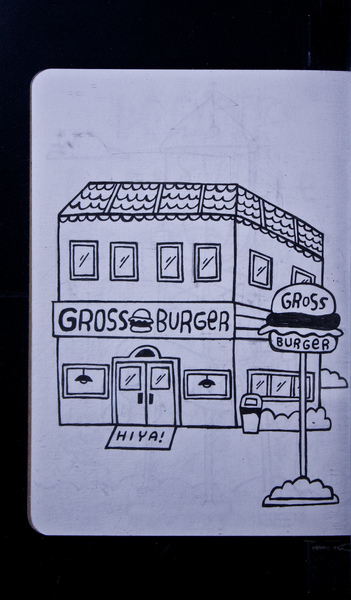 GROSS BURGER
GROSS
BURGER
HIYA!